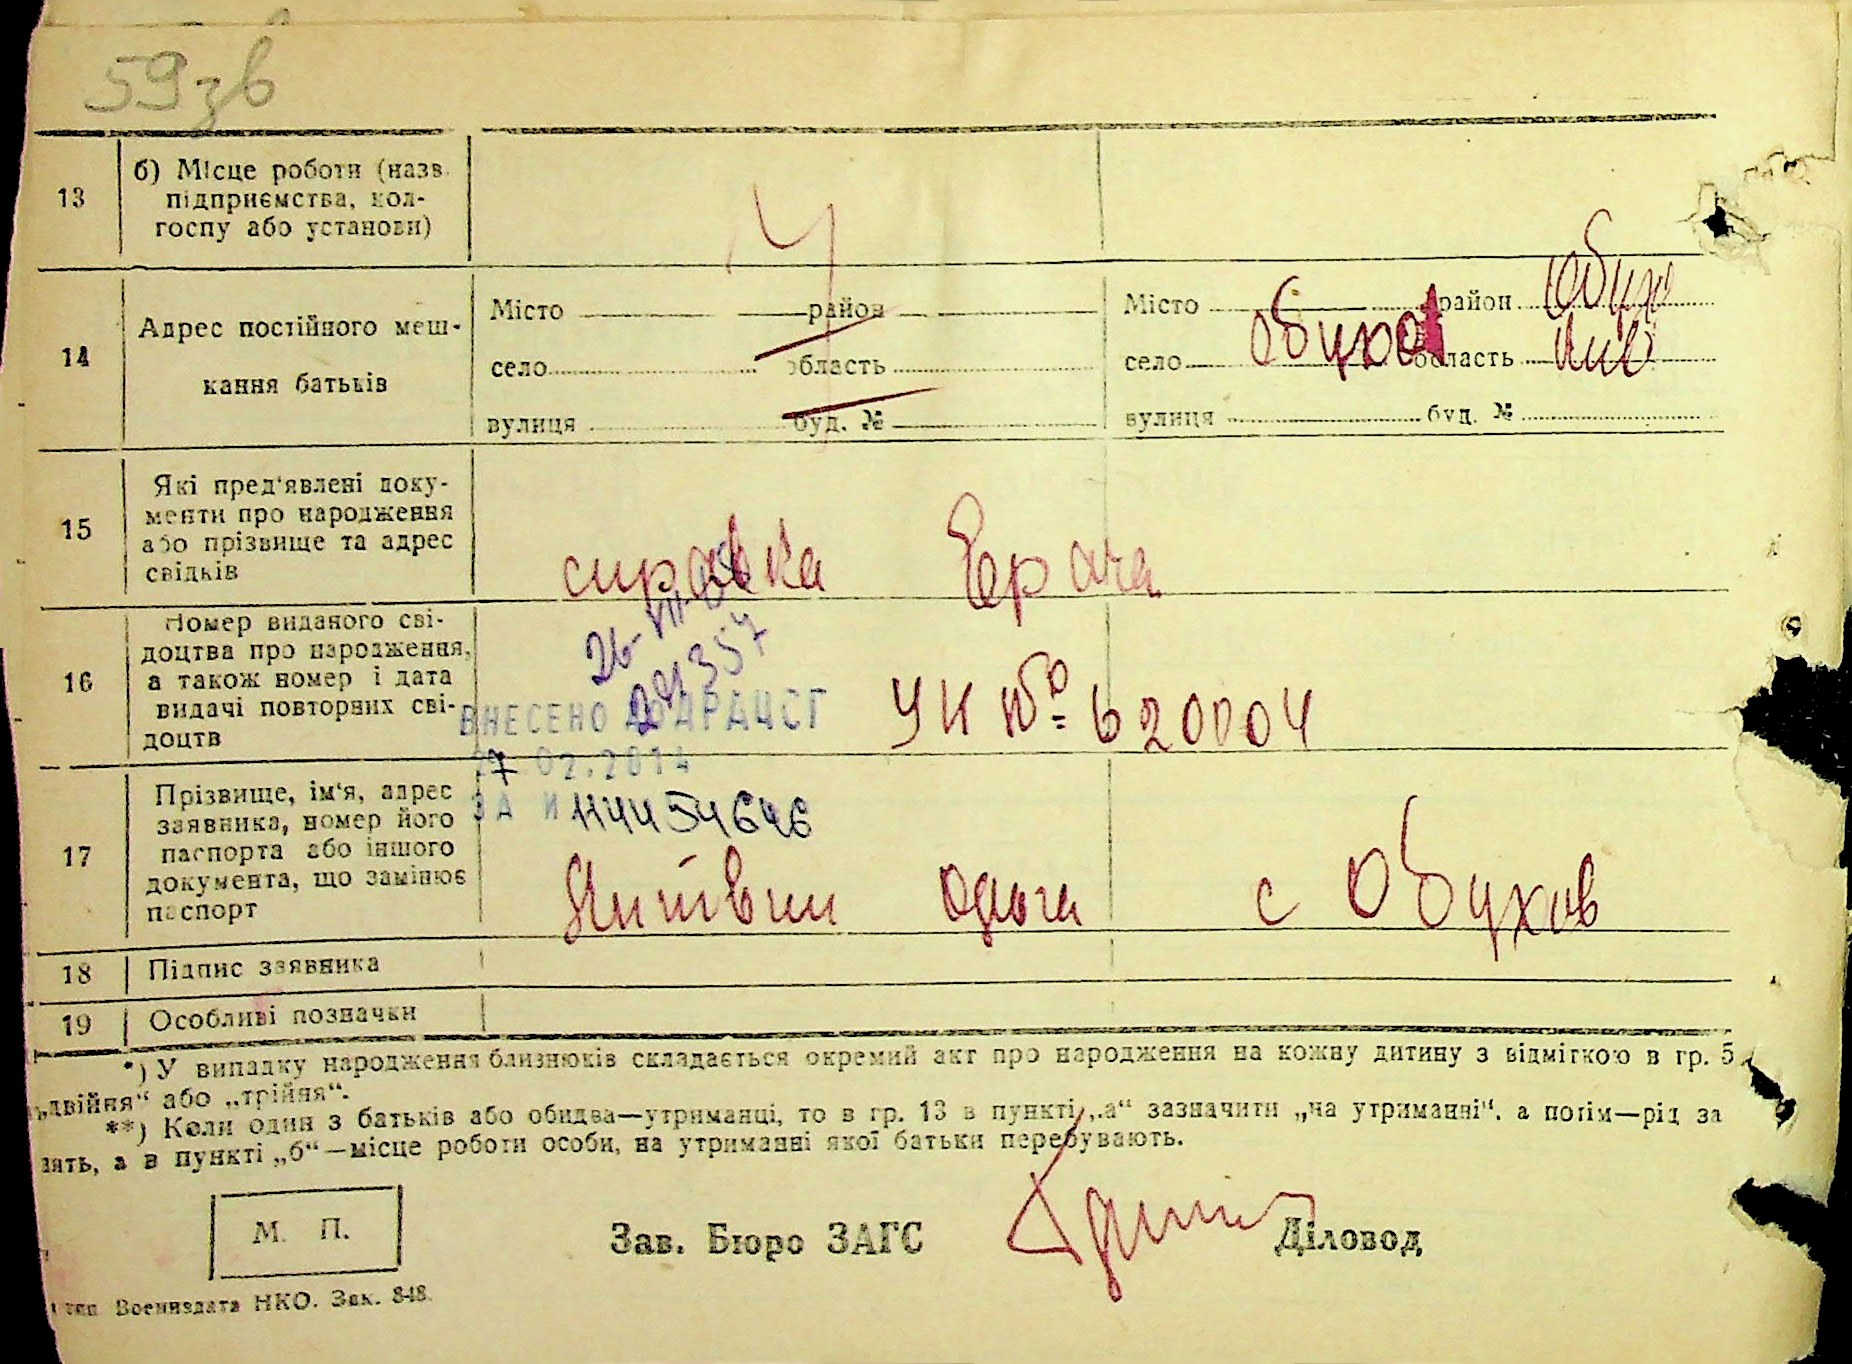 59зв
13
б) Місце роботи (назв.
підприємства, кол-
госпу або установи)
14
Адрес постійного меш-
кання батьків
Місто район
село область
вулиця буд. №
Місто район Обухо
село Обухов область Київ
вулиця буд. №
15
Які пред'явлені доку-
менти про народження
або прізвище та адрес
свідків
справка Врача
16
Номер виданого сві-
доцтва про народження,
а також номер і дата
видачі повторних сві-
доцтв
26-VII-
ВНЕСЕНО ДО ДРАЦСГ
27.02.2014
ЗА №
УК № 620004
17
Прізвище, ім'я, адрес
заявника, номер його
паспорта або іншого
документа, що замінює
паспорт
Литвин Ольга с Обухов
18 Підпис заявника
19 Особливі позначки
*) У випадку народження близнюків складається окремий акт про народження на кожну дитину з відміткою в гр. 5
„двійня“ або „трійня“.
**) Коли один з батьків або обидва—утриманці, то в гр. 13 в пункті „а“ зазначити „на утриманні“, а потім—рід за
нять, а в пункті „б“—місце роботи особи, на утриманні якої батьки перебувають.
М. П.
Зав. Бюро ЗАГС Діловод
тип Воениздата НКО. Зак. 848.